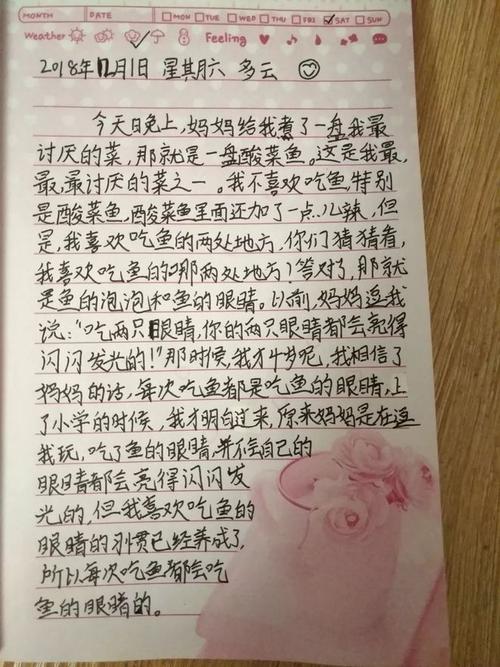 MONTH DATE MON TUE WED THU FRI SAT SUN
Weather Feeling
2018年12月1日 星其月六 多云
今天日免上,妈妈给我煮了一盘我最
讨厌的菜,那就是一盘酸菜鱼。这是我最,
最,最讨厌的菜之一。我不喜欢吃鱼,特别
是酸菜鱼,酸菜鱼里面还加了一点儿辣,但
是,我喜欢吃鱼的两处地方,你们猜猜看,
我喜欢吃鱼的哪两处地方?答对了,那就
是鱼的泡泡和鱼的眼睛。以前,妈妈逗我
说:“吃两只眼睛,你的两只眼睛都会亮得
闪闪发光的!”那时候,我才4岁呢,我相信了
妈妈的话,每次吃鱼都是吃鱼的眼睛,上
了小学的时候,我才明白过来,原来妈妈是在逗
我玩,吃了鱼的眼睛,并不会自己的
眼睛都会亮得闪闪发
光的,但我喜欢吃鱼的
眼睛的习惯已经养成了,
所以每次吃鱼都会吃
鱼的眼睛的。